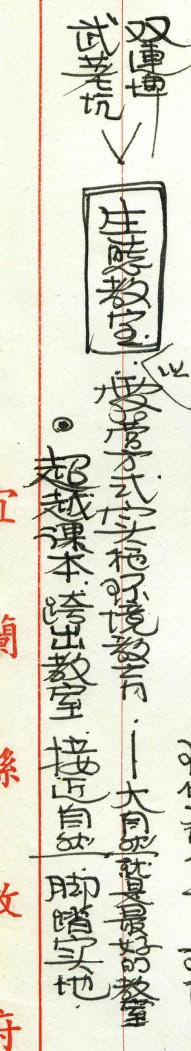 双連埤
武荖坑
生態教室
以
露營方式实施环境教育——大自然就是最好的教室
◉超越课本 跨出教室 接近自然 脚踏实地
宜蘭縣政府